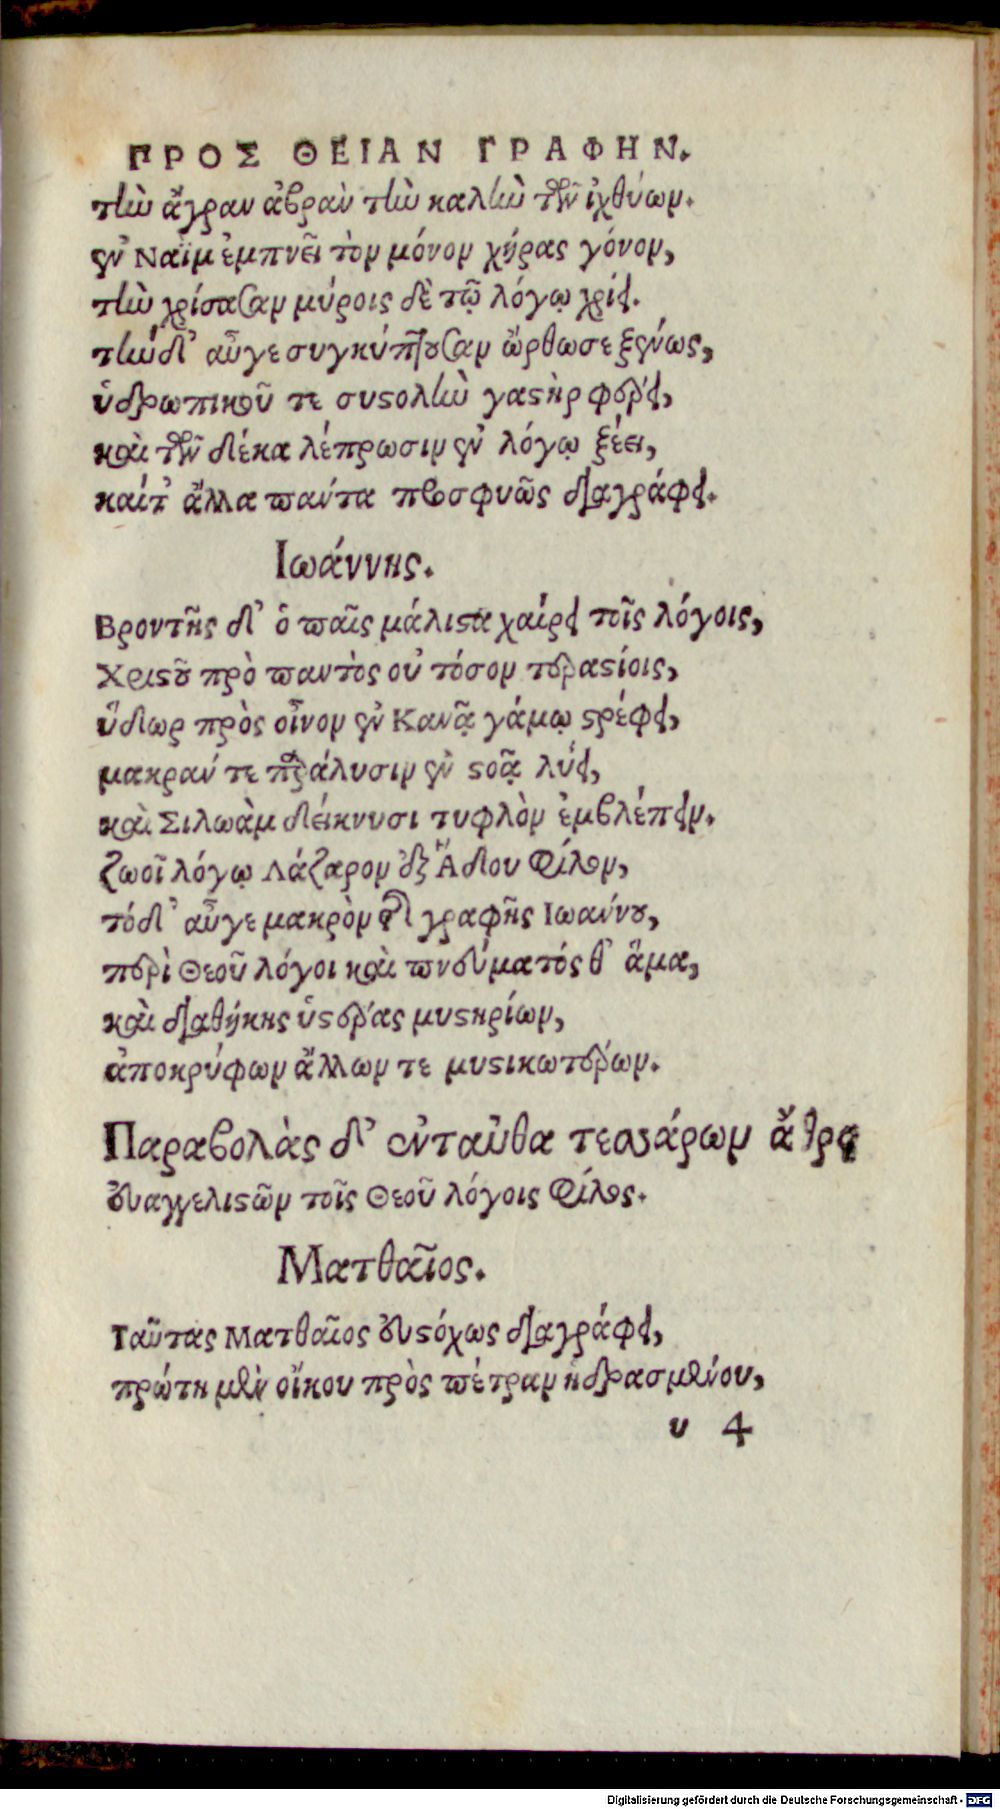 ΠΡΟΣ ΘΕΙΑΝ ΓΡΑΦΗΝ.
τὴν ἄγραν ἁβρὰν τὴν καλὴν τῶν ἰχθύων.
ἐν Ναῒμ ἐμπνεῖ τὸν μόνον χήρας γόνον,
τὴν χρίσασαν μύροις δὲ τῷ λόγῳ χρίει.
τὴν δ' αὖγε συγκύπτουσαν ὤρθωσε ξένως,
ὑδρωπικοῦ τε συστολὴν γαστὴρ φέρει,
καὶ τῶν δέκα λέπρωσιν ἐν λόγῳ ξέει,
καίτ' ἄλλα πάντα προσφυῶς διαγράφει.
Ιωάννης.
Βροντῆς δ' ὁ παῖς μάλιστα χαίρει τοῖς λόγοις,
Χριστοῦ πρὸ παντὸς οὐ τόσον τεραστίοις,
ὕδωρ πρὸς οἶνον ἐν Κανᾷ γάμῳ στρέφει,
μακράν τε παράλυσιν ἐν στοᾷ λύει,
καὶ Σιλωὰμ δείκνυσι τυφλὸν ἐμβλέπειν.
ζωοῖ λόγῳ Λάζαρον ἐξ Ἅδου φίλον,
τό δ' αὖγε μακρὸν γραφῆς Ιωάννου,
περὶ Θεοῦ λόγοι καὶ πνεύματός θ' ἅμα,
καὶ διαθήκης ὑστέρας μυστηρίων,
ἀποκρύφων ἄλλων τε μυστικωτέρων.
Παραβολὰς δ' ἐνταῦθα τεσσάρων ἄθρει
εὐαγγελιστῶν τοῖς Θεοῦ λόγοις φίλος.
Ματθαῖος.
Ταῦτας Ματθαῖος εὐστόχως διαγράφει,
πρώτη μὲν οἴκου πρὸς πέτραν ἡδρασμένου,
υ 4
Digitalisierung gefördert durch die Deutsche Forschungsgemeinschaft - DFG